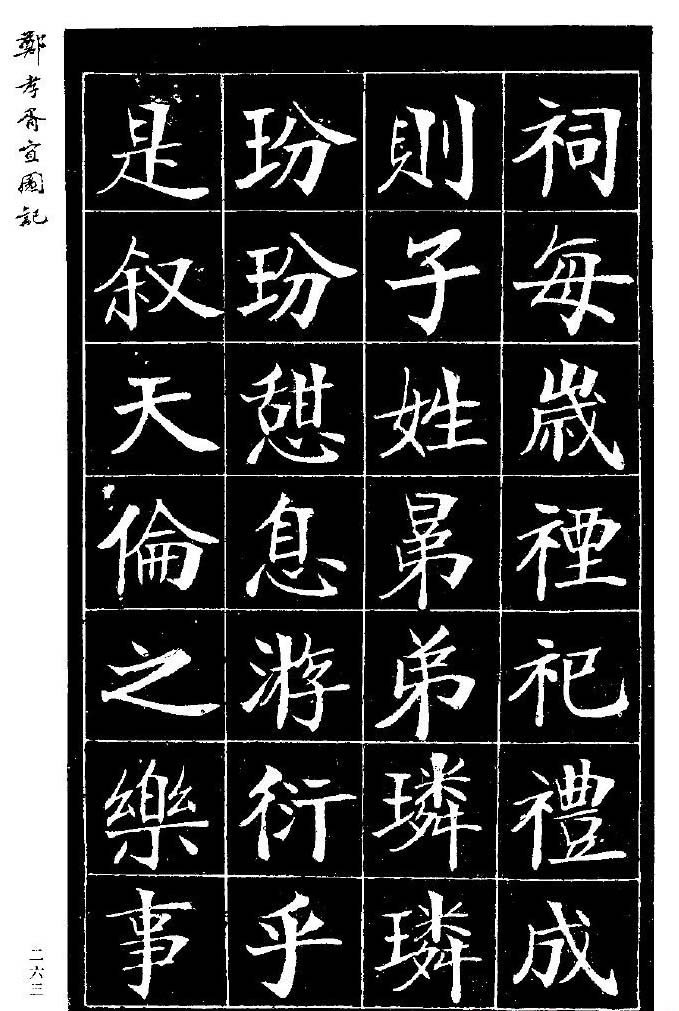 祠每歲禋祀禮成
則子姓晜弟璘璘
玢玢憇息游衍乎
是叙天倫之樂事
鄭孝胥宜園記
二六三